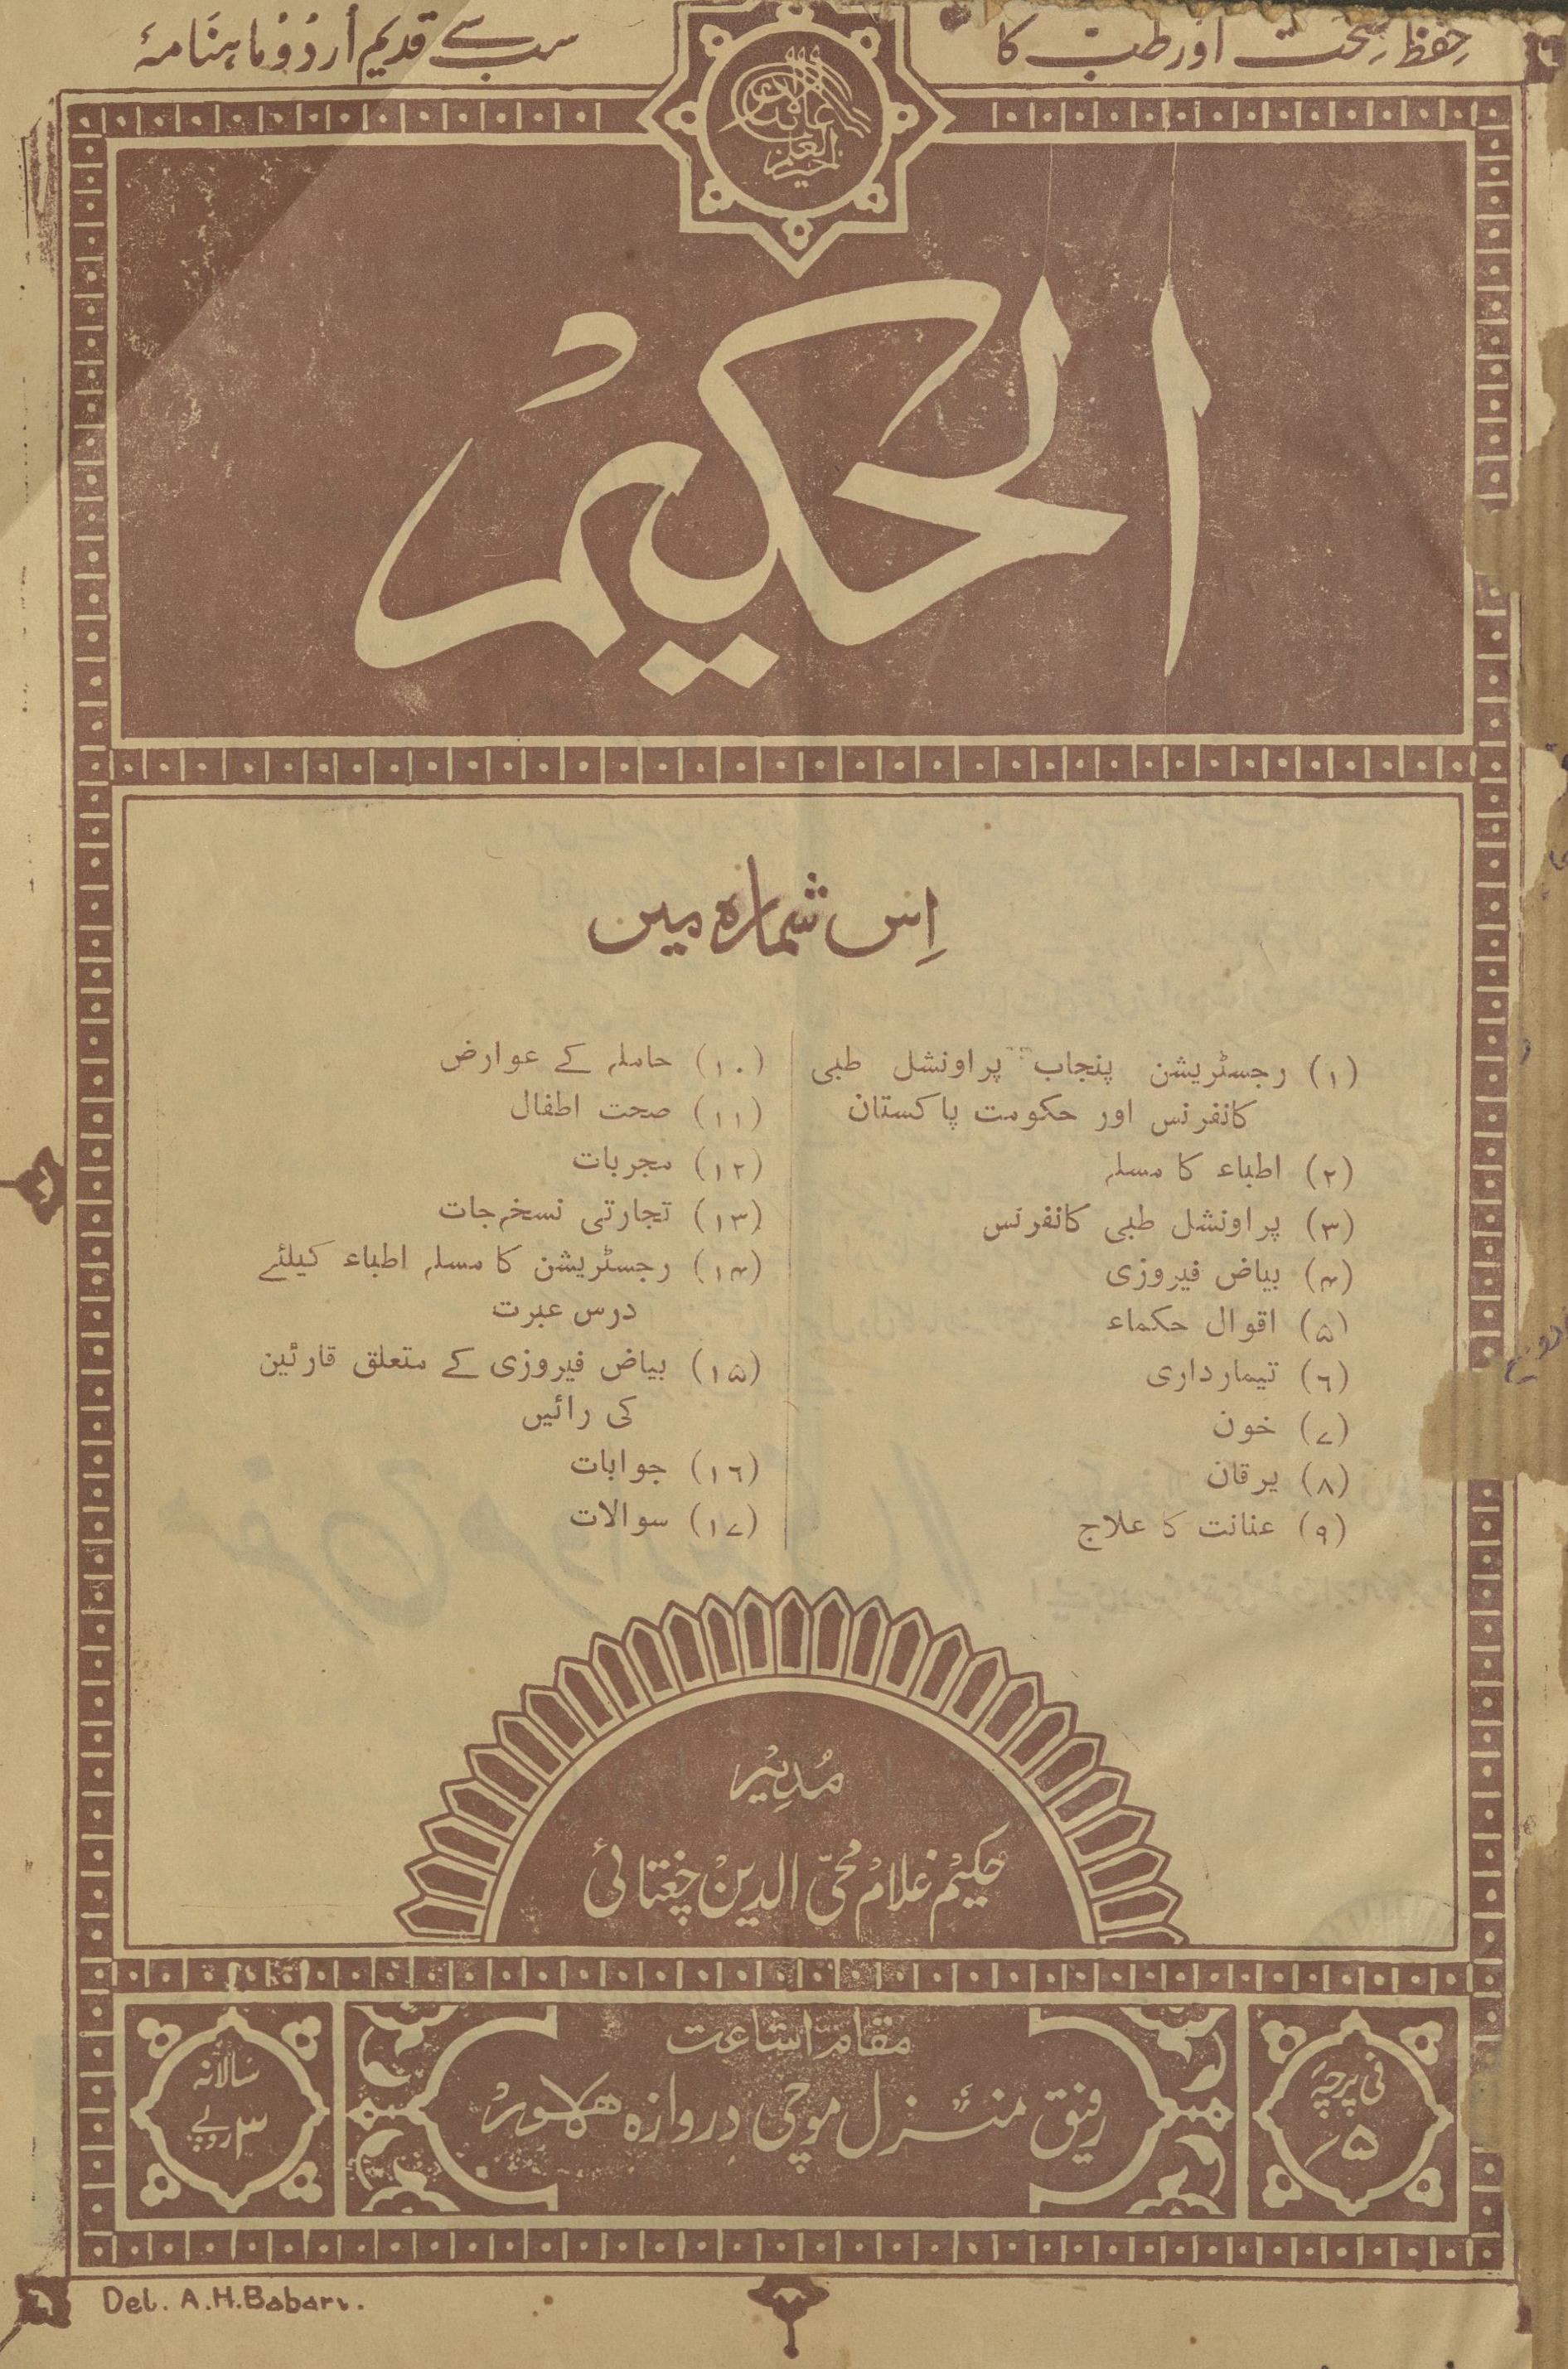 حِفظِ صِحت اور طب کا
سب سے قدیم اُردُو ماہنامۂ
الحکیم
اِس شمارہ میں
(۱) رجسٹریشن پنجاب پراونشل طبی
کانفرنس اور حکومت پاکستان
(۲) اطباء کا مسلہ
(۳) پراونشل طبی کانفرنس
(۴) بیاض فیروزی
(۵) اقوال حکماء
(۶) تیمارداری
(۷) خون
(۸) یرقان
(۹) عنانت کا علاج
(۱۰) حاملہ کے عوارض
(۱۱) صحت اطفال
(۱۲) مجربات
(۱۳) تجارتی نسخہ جات
(۱۴) رجسٹریشن کا مسلہ اطباء کیلئے
درس عبرت
(۱۵) بیاض فیروزی کے متعلق قارئین
کی رائیں
(۱۶) جوابات
(۱۷) سوالات
مُدیْر
حکیْم غلامْ محیّ الدینْ چغتائی
فی پرچہ
۵/
مقام اشاعت
رفیق منزل موچی دروازہ لاہور
سالانہ
۳ روپے
Del. A.H.Babari.